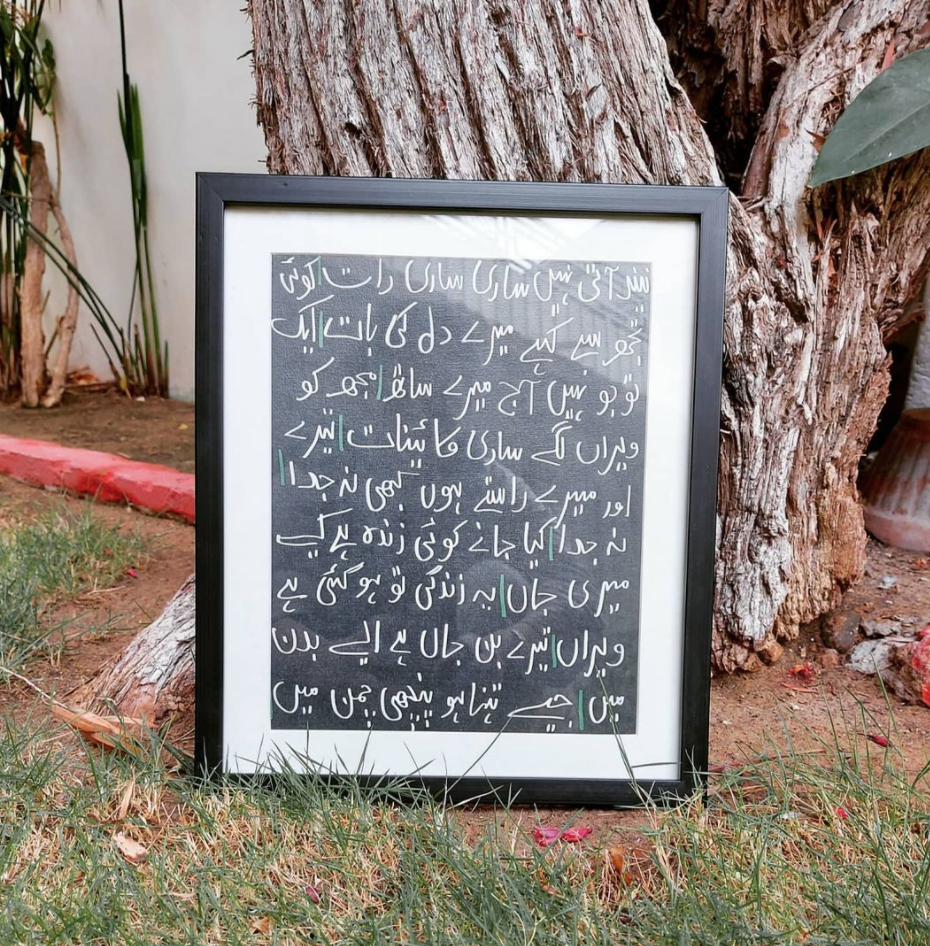 نیند آتی نہیں ساری ساری رات | کوئی
مجھ سے کہے میرے دل کی بات | ایک
تو ہو نہیں آج میرے ساتھ | مجھ کو
ویراں لگے ساری کائنات | تیرے
اور میرے راستے ہوں کبھی نہ جدا |
نہ جدا | کیا جانے کوئی زندہ ہے کیسے
میری جاں | یہ زندگی تو ہو گئی ہے
ویراں | تیرے بن جاں ہے ایسے بدن
میں | جیسے تنہا ہو پنچھی چمن میں